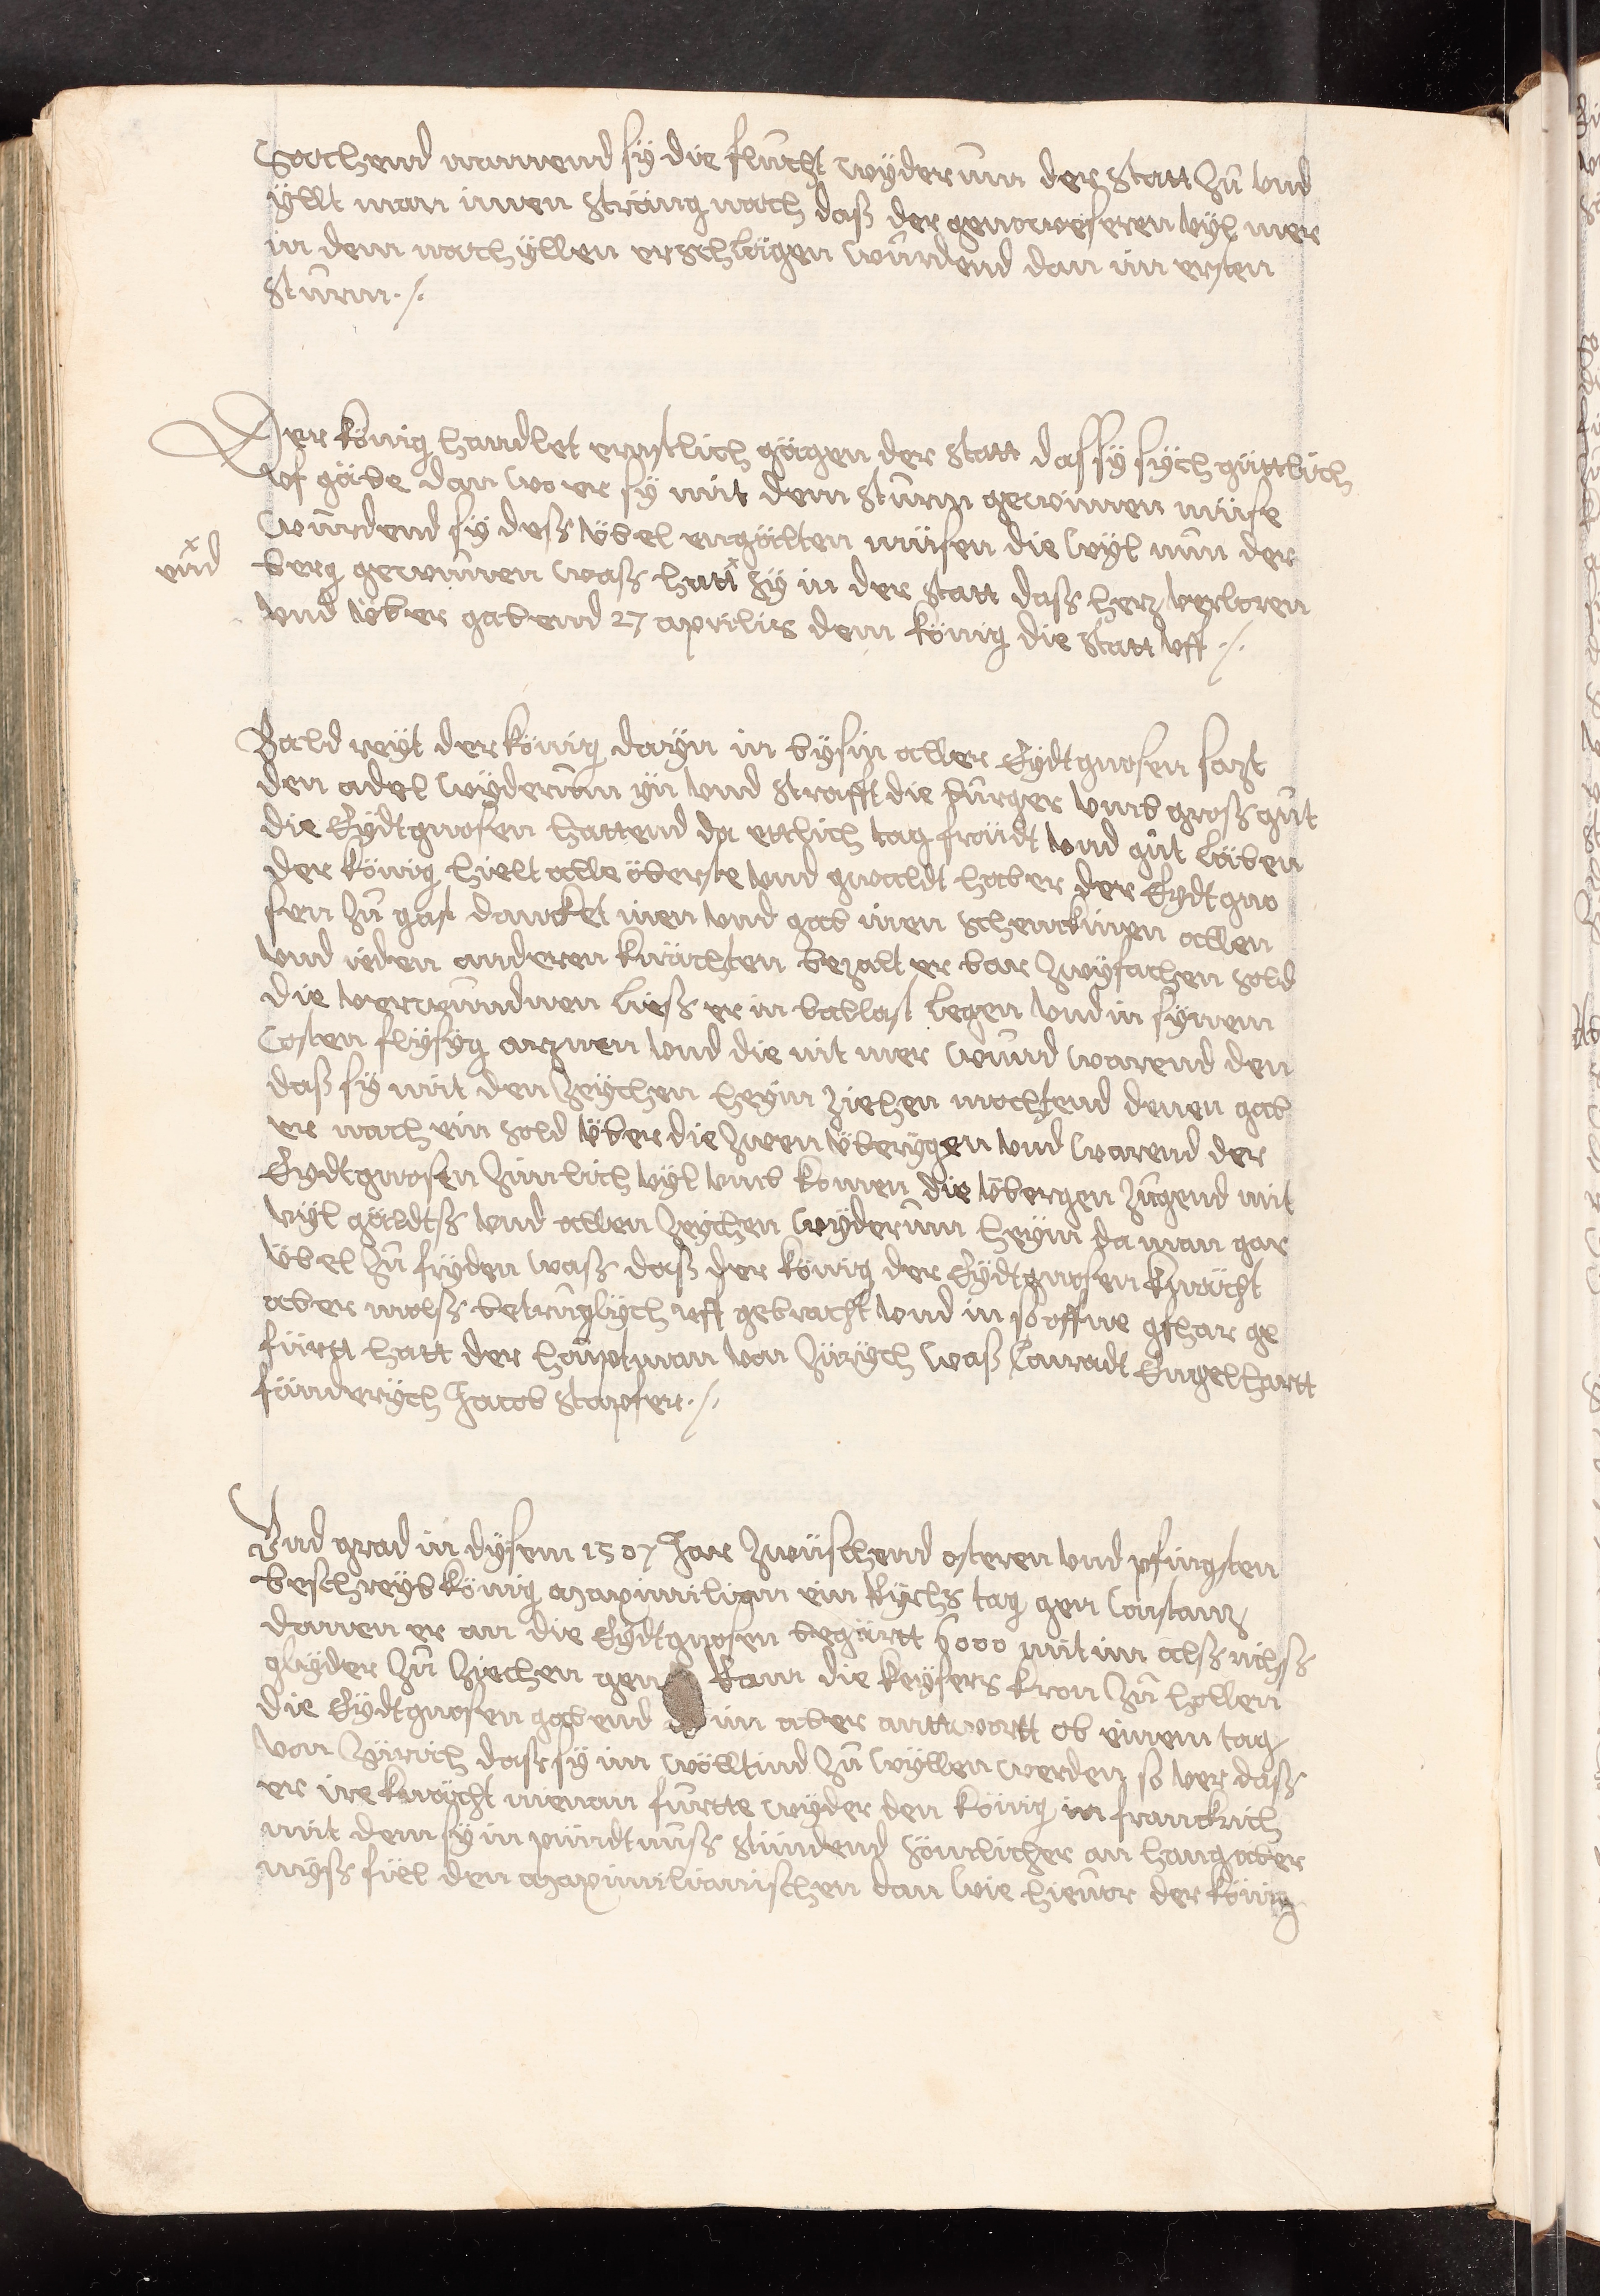 Sachend namend sÿ die flucht wÿderum der statt zů und
ÿllt man innen sträng nach daß der genoweseren vyl mer
in dem nach ÿllen erschlagen wurdend dan im ersten
sturm ./.
Der könig handlet ernstlich gägen der statt das sÿ sÿch güttlich
uf gäbe dan wo er sÿ mit dem sturm gewinnen müse
wurdend sÿ deß übel engälten müsen die wyl nun der
und berg gewunnen waß hatt sÿ in der statt daß herz verloren
und über gabend 27 aprilis dem könig die statt uff ./.
Bald reÿt der könig daryn in bÿsin aller Eydtgnosen sazt
den adel wÿderum ÿn und strafft die burger umb groß gůt
die Eÿdtgnosen hattend da ettlich tag fröudt und gůt läben
der könig hielt alle öberste und gwaldt haber der Eydtgno
sen zů gast dancket inen und gab inen schenckinen allen
und ieden anderen knächten bezalt er bar zwyfachen sold
die verwundnen ließ er in ballast legen und in sÿnem
Costen flÿsÿg arznen und die nit mer wund warend den
daß sÿ mit den zeychen heÿm ziehen mochtend denen gab
er nach ein sold über die zwen überÿgen und warend der
Eydtgnosen zimlich vyl umb komen die übergen zugend mit
vyl gäldtß und allen zeÿchen wÿderum heÿm da man gar
übel zů friden waß daß der könig der Eÿdtgnosen knächt
aber malß betruglÿch uff gebracht und in so offne gfhar ge
fürtt hatt der houptman von Zürÿch waß Conradt Engelhartt
fänderÿch Jacob Stapfer ./.
Und grad in dÿsem 1507 Jar zwüschend osteren und pfingsten
beschreÿb könig maximilian ein Rÿchs tag gen Constanz
dannen er an die Eÿdtgnosen begärtt 6000 mit im alß richß
glyder zů ziechen gen Rom die keÿsers kron zů hollen
die Eÿdtgnosen gabend im aber anttwortt ob einem tag
von Zürich daß sÿ im wölltind zů wyllen werden so ver daß
er ire knächt nienan fürtte wÿder den könig in franckrich
mit dem sÿ in pündtnuß stündend sömlicher an hang aber
myß fiel den maximilianischen dan wie hievor der könig